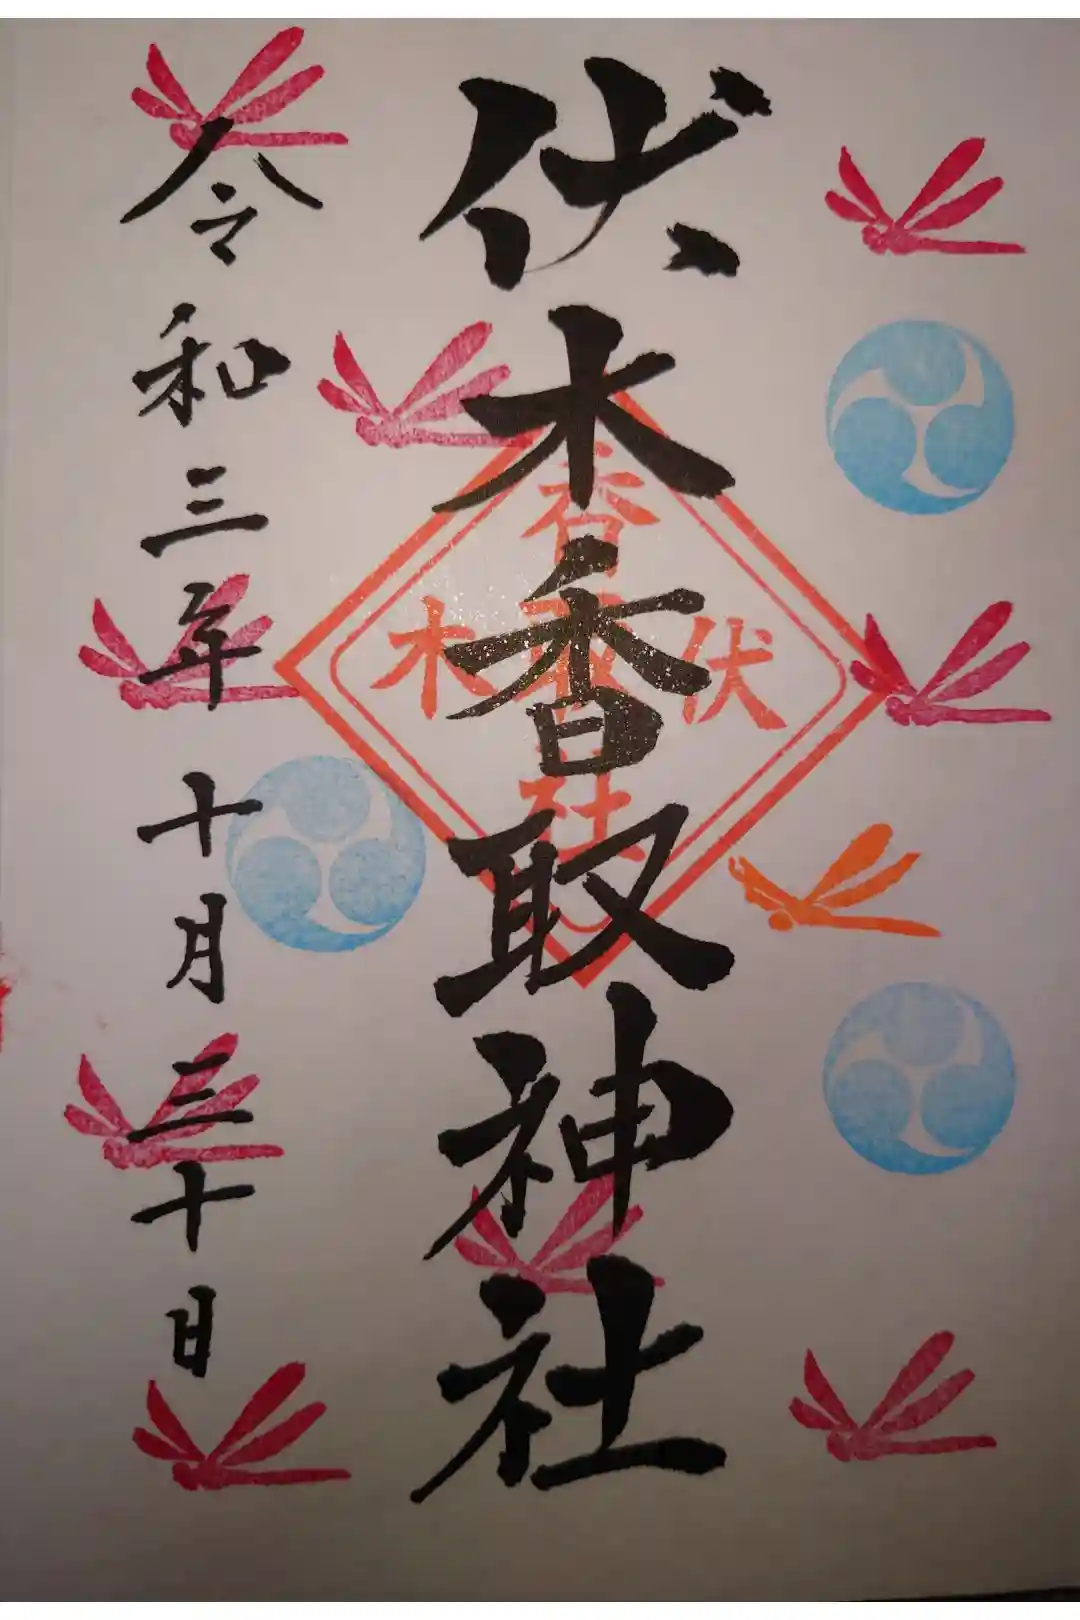 伏木香取神社
令和三年十月三十日
香
伏取木
社